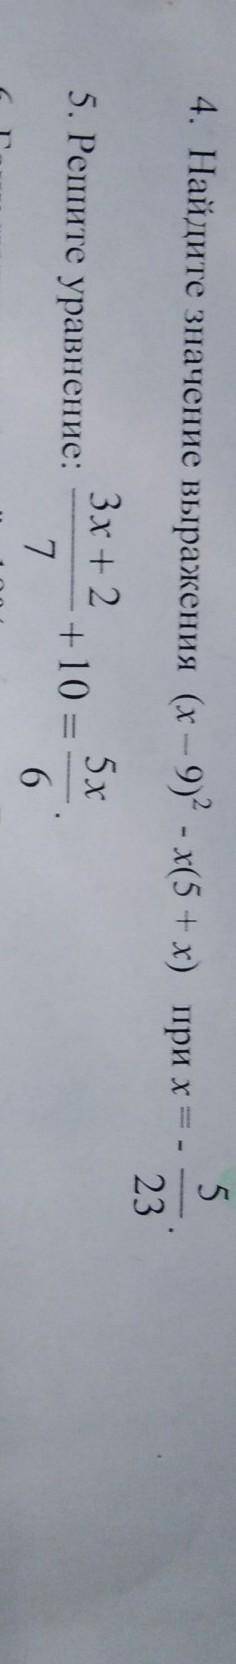 4. Найдите значение выражения (x − 9)² - x(5 + x) при x = - 5/23.
5. Решите уравнение: (3x + 2)/7 + 10 = 5x/6.